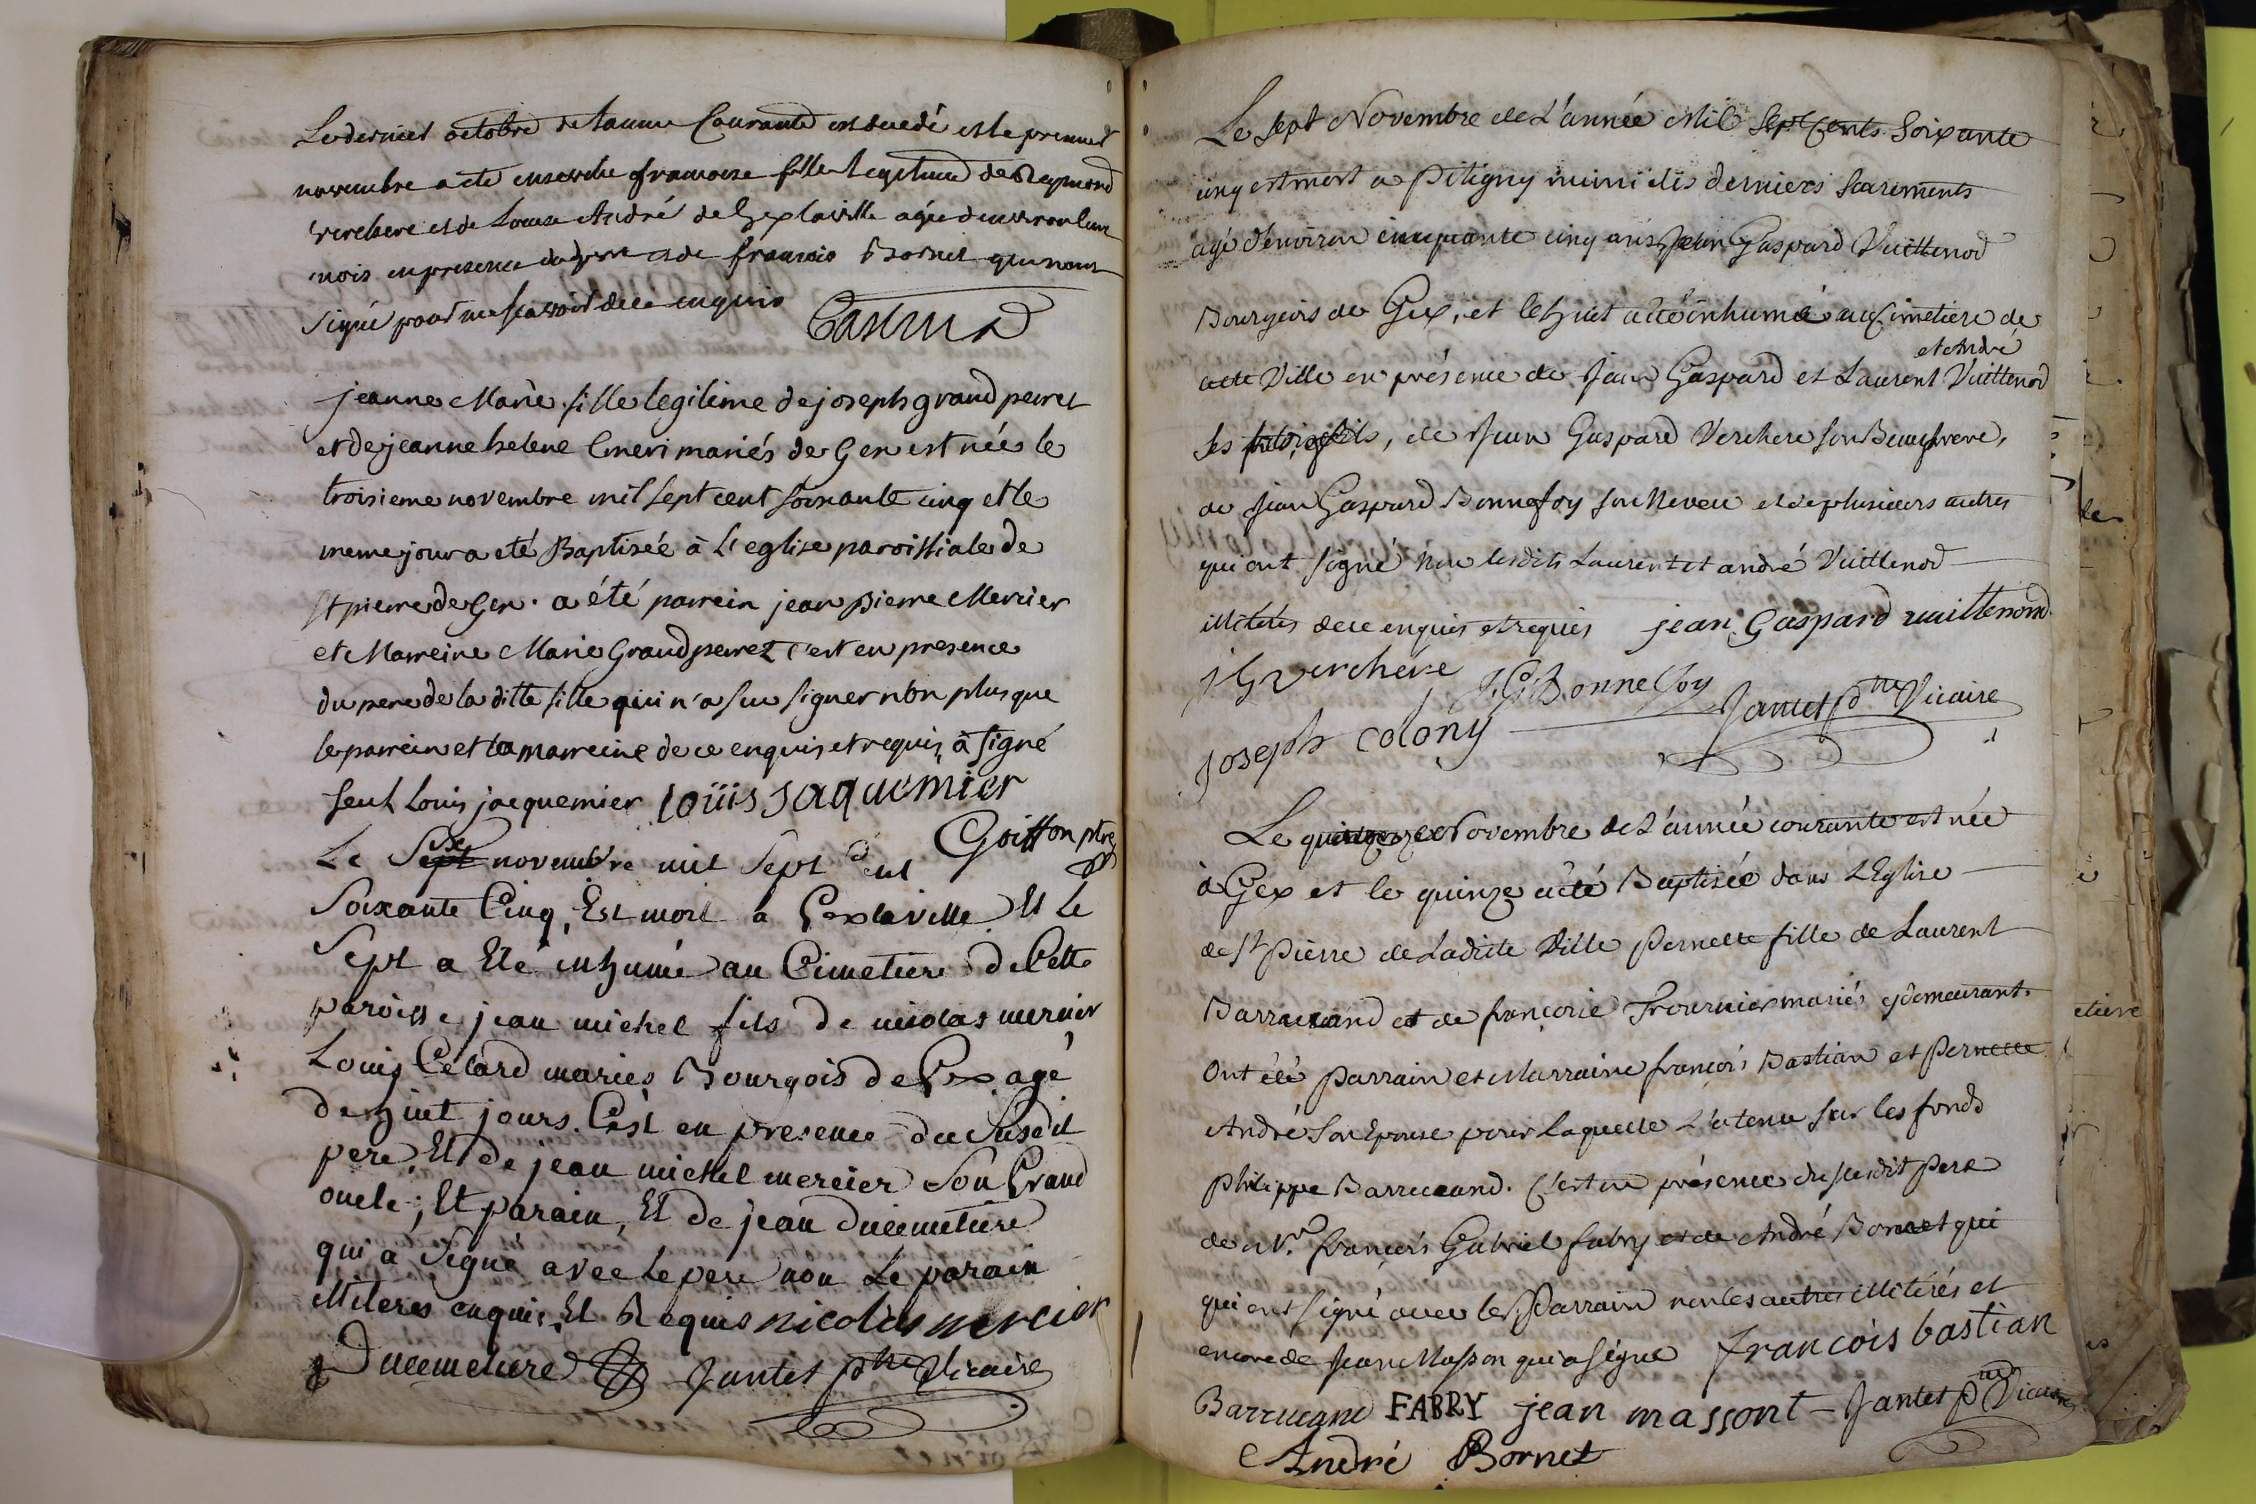 Le dernier octobre de l'année Courante est decedé et le premier
novembre a eté ensevelie francoise fille legitime de Reymond
verchere et de Louise André de Gex la ville agée d'environ un
mois en presence du pere et de francois Bornet qui n'ont
signé pour ne scavoir de ce enquis Castin
jeanne Marie fille legitime de joseph grand perret
et de jeanne helene Emeri mariés de Gex est née le
troisieme novembre mil sept cent soixante cinq et le
meme jour a eté Baptisée à l'eglise paroissiale de
St pierre de Gex. a été parrein jean pierre Mercier
et Marreine Marie Grandperret c'est en presence
du pere de la ditte fille qui n'a su signer non plus que
le parrein et la marreine de ce enquis et requis, à signé
seul Louis jacquemier loüis jaquemier
Goiffon ptre
Six
Le Sept novembre mil Sept Cent
Soixante Cinq, Est mort a Gex la ville Et Le
Sept a Eté inhumé au Cimetiere de Cette
paroisse jean michel fils de nicolas mercier
Louis Celard mariés Bourgois de Gex agé
de huit jours. C'est en presence du Susdit
pere, Et de jean michel mercier Son Grand
oncle; Et parain, Et de jean Ducimetiere
qui a Signé avec le pere non Le parain
illiteres enquis, Et Requis nicolas mercier
Ducimetiere Jantet ptre Vicaire
Le Sept Novembre de L'année Mil Sept Cents Soixante
cinq est mort a Pitigny muni des derniers Sacrements
agé d'environ cinquante cinq ans Jean Gaspard Vuittenod
Bourgeois de Gex, et le huit a été inhumé au Cimetiere de
et André
cette Ville en présence de Jean Gaspard et Laurent Vuittenod
ses fils, de Jean Gaspard Verchere son Beaufrere,
de Jean Gaspard Bonnefoy son Neveu et de plusieurs autres
qui ont signé non lesdits Laurent et andré Vuittenod
illitérés de ce enquis et requis jean Gaspard vuittenond
j G verchére J. G. Bonnefoy Jantet ptre Vicaire
Joseph colony
Le Novembre de L'année courante est née
à Gex et le quinze a été Baptisée dans L'Eglise
de St Pierre de Ladicte Ville Pernette fille de Laurent
Barrucand et de françoise Fournier mariés y demeurant.
Ont été Parrain et Marraine françois Bastian et Pernette
André Son Epouse pour laquelle L'a tenu sur les fonds
Philippe Barrucand. C'est en présence du susdit Pere
de Mr. françois Gabriel fabry et de André Bornet qui
qui ont signé avec le Parrain non les autres illitérés et
encore de Jean Masson qui a signé françois bastian
Barrucand FABRY jean massont Jantet ptre Vicaire
André Bornet